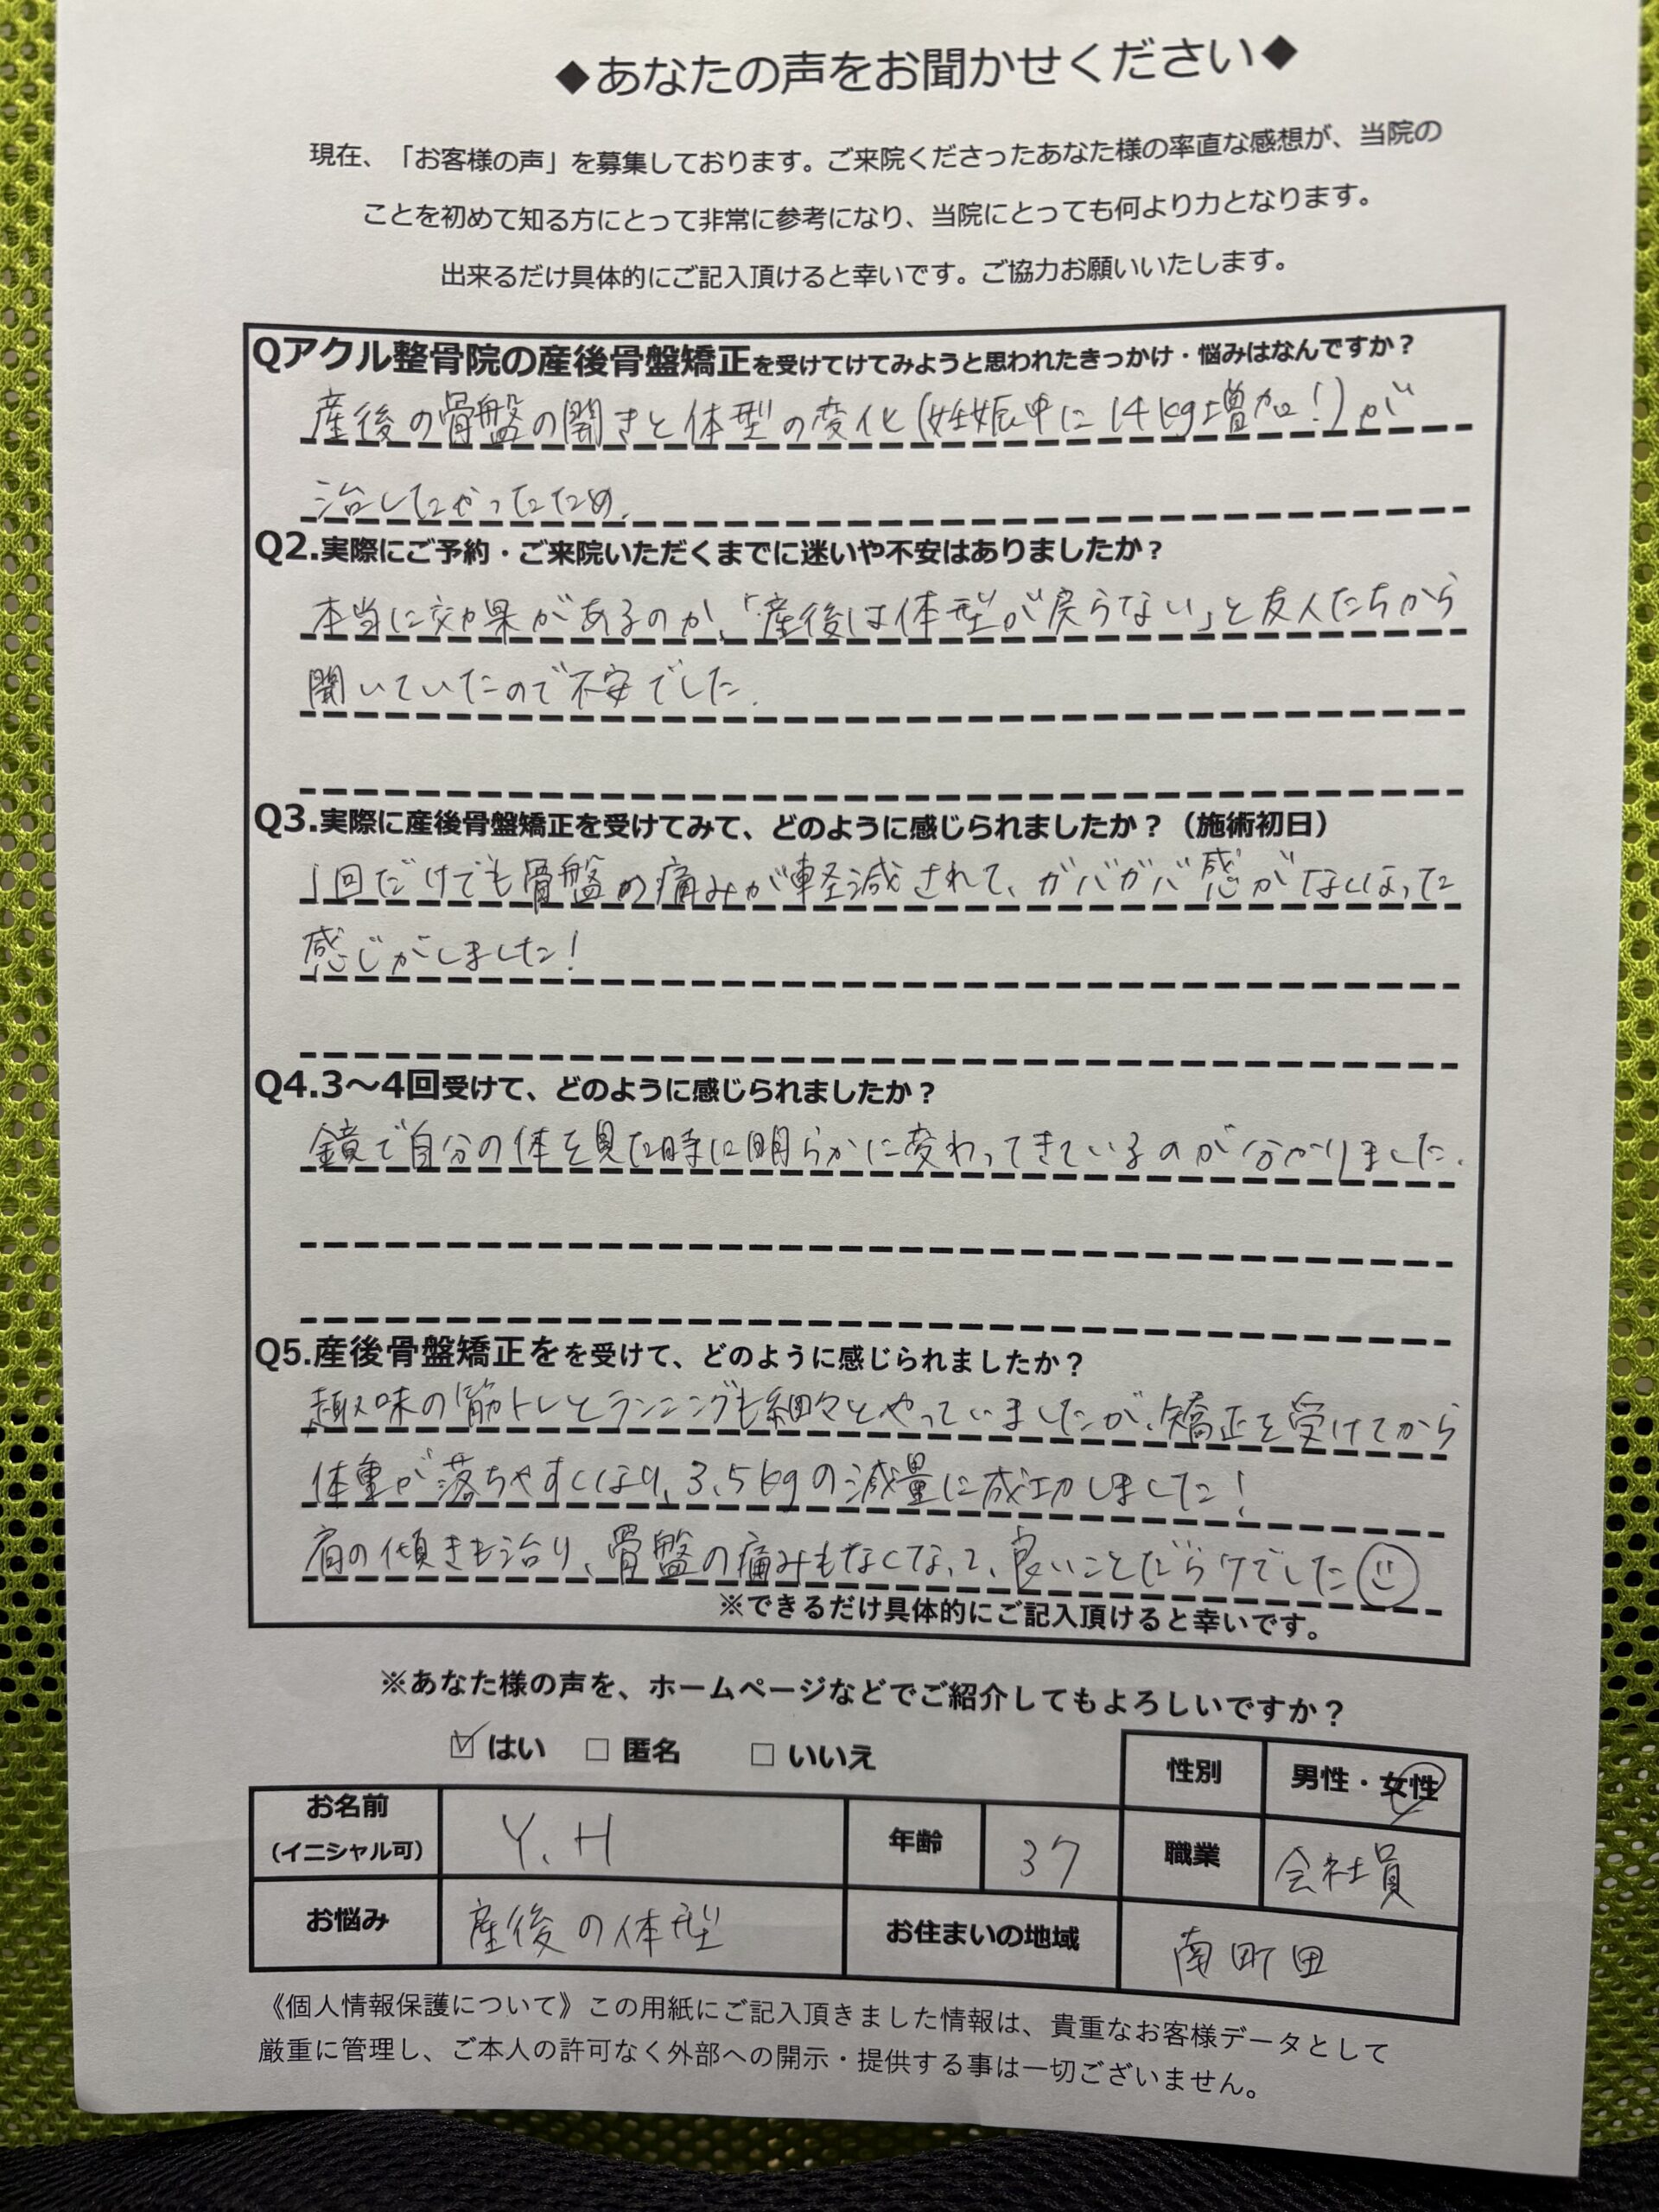 ◆あなたの声をお聞かせください◆
現在、「お客様の声」を募集しております。ご来院くださったあなた様の率直な感想が、当院の
ことを初めて知る方にとって非常に参考になり、当院にとっても何より力となります。
出来るだけ具体的にご記入頂けると幸いです。ご協力お願いいたします。
Qアクル整骨院の産後骨盤矯正を受けてけてみようと思われたきっかけ・悩みはなんですか？
産後の骨盤の開きと体型の変化(妊娠中に14kg増加!)が
治したかったため.
Q2.実際にご予約・ご来院いただくまでに迷いや不安はありましたか？
本当に効果があるのか、「産後は体型が戻らない」と友人たちから
聞いていたので不安でした.
Q3.実際に産後骨盤矯正を受けてみて、どのように感じられましたか？（施術初日）
1回だけでも骨盤の痛みが軽減されて、ガバガバ感がなくなった
感じがしました!
Q4.3～4回受けて、どのように感じられましたか？
鏡で自分の体を見た時に明らかに変わってきているのが分かりました.
Q5.産後骨盤矯正をを受けて、どのように感じられましたか？
趣味の筋トレとランニングも細々とやっていましたが、矯正を受けてから
体重が落ちやすくなり、3.5kgの減量に成功しました!
肩の傾きも治り、骨盤の痛みもなくなって、良いことだらけでした
※できるだけ具体的にご記入頂けると幸いです。
※あなた様の声を、ホームページなどでご紹介してもよろしいですか？
☑ はい □ 匿名 □ いいえ
性別 男性・女性
お名前
（イニシャル可） Y.H 年齢 37 職業 会社員
お悩み 産後の体型 お住まいの地域 南町田
《個人情報保護について》この用紙にご記入頂きました情報は、貴重なお客様データとして
厳重に管理し、ご本人の許可なく外部への開示・提供する事は一切ございません。